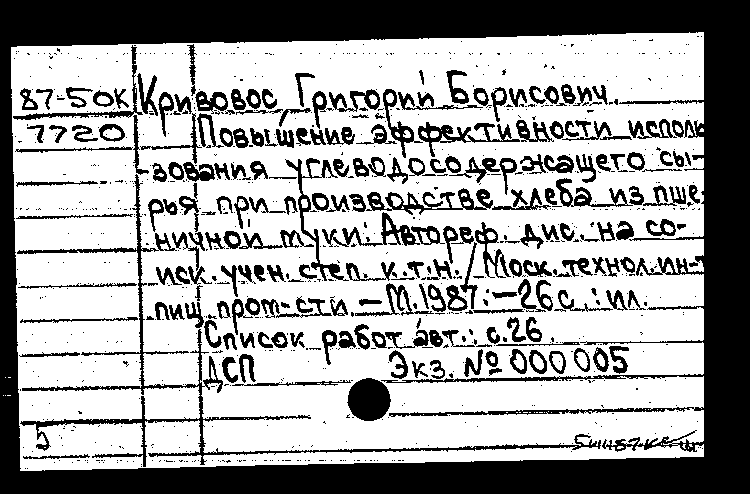 87-50К Кривовос, Григорий Борисович.
7720 Повышение эффективности исполь
-зования углеводосодержащего сы-
рья при производстве хлеба из пше-
ничной муки: Автореф. дис. на со-
иск. учен. степ. к.т.н. / Моск. технол. ин-т
пищ. пром-сти. – М. 1987. – 26 с. : ил.
Список работ авт.: с. 26.
ДСП Экз. № 000005
5